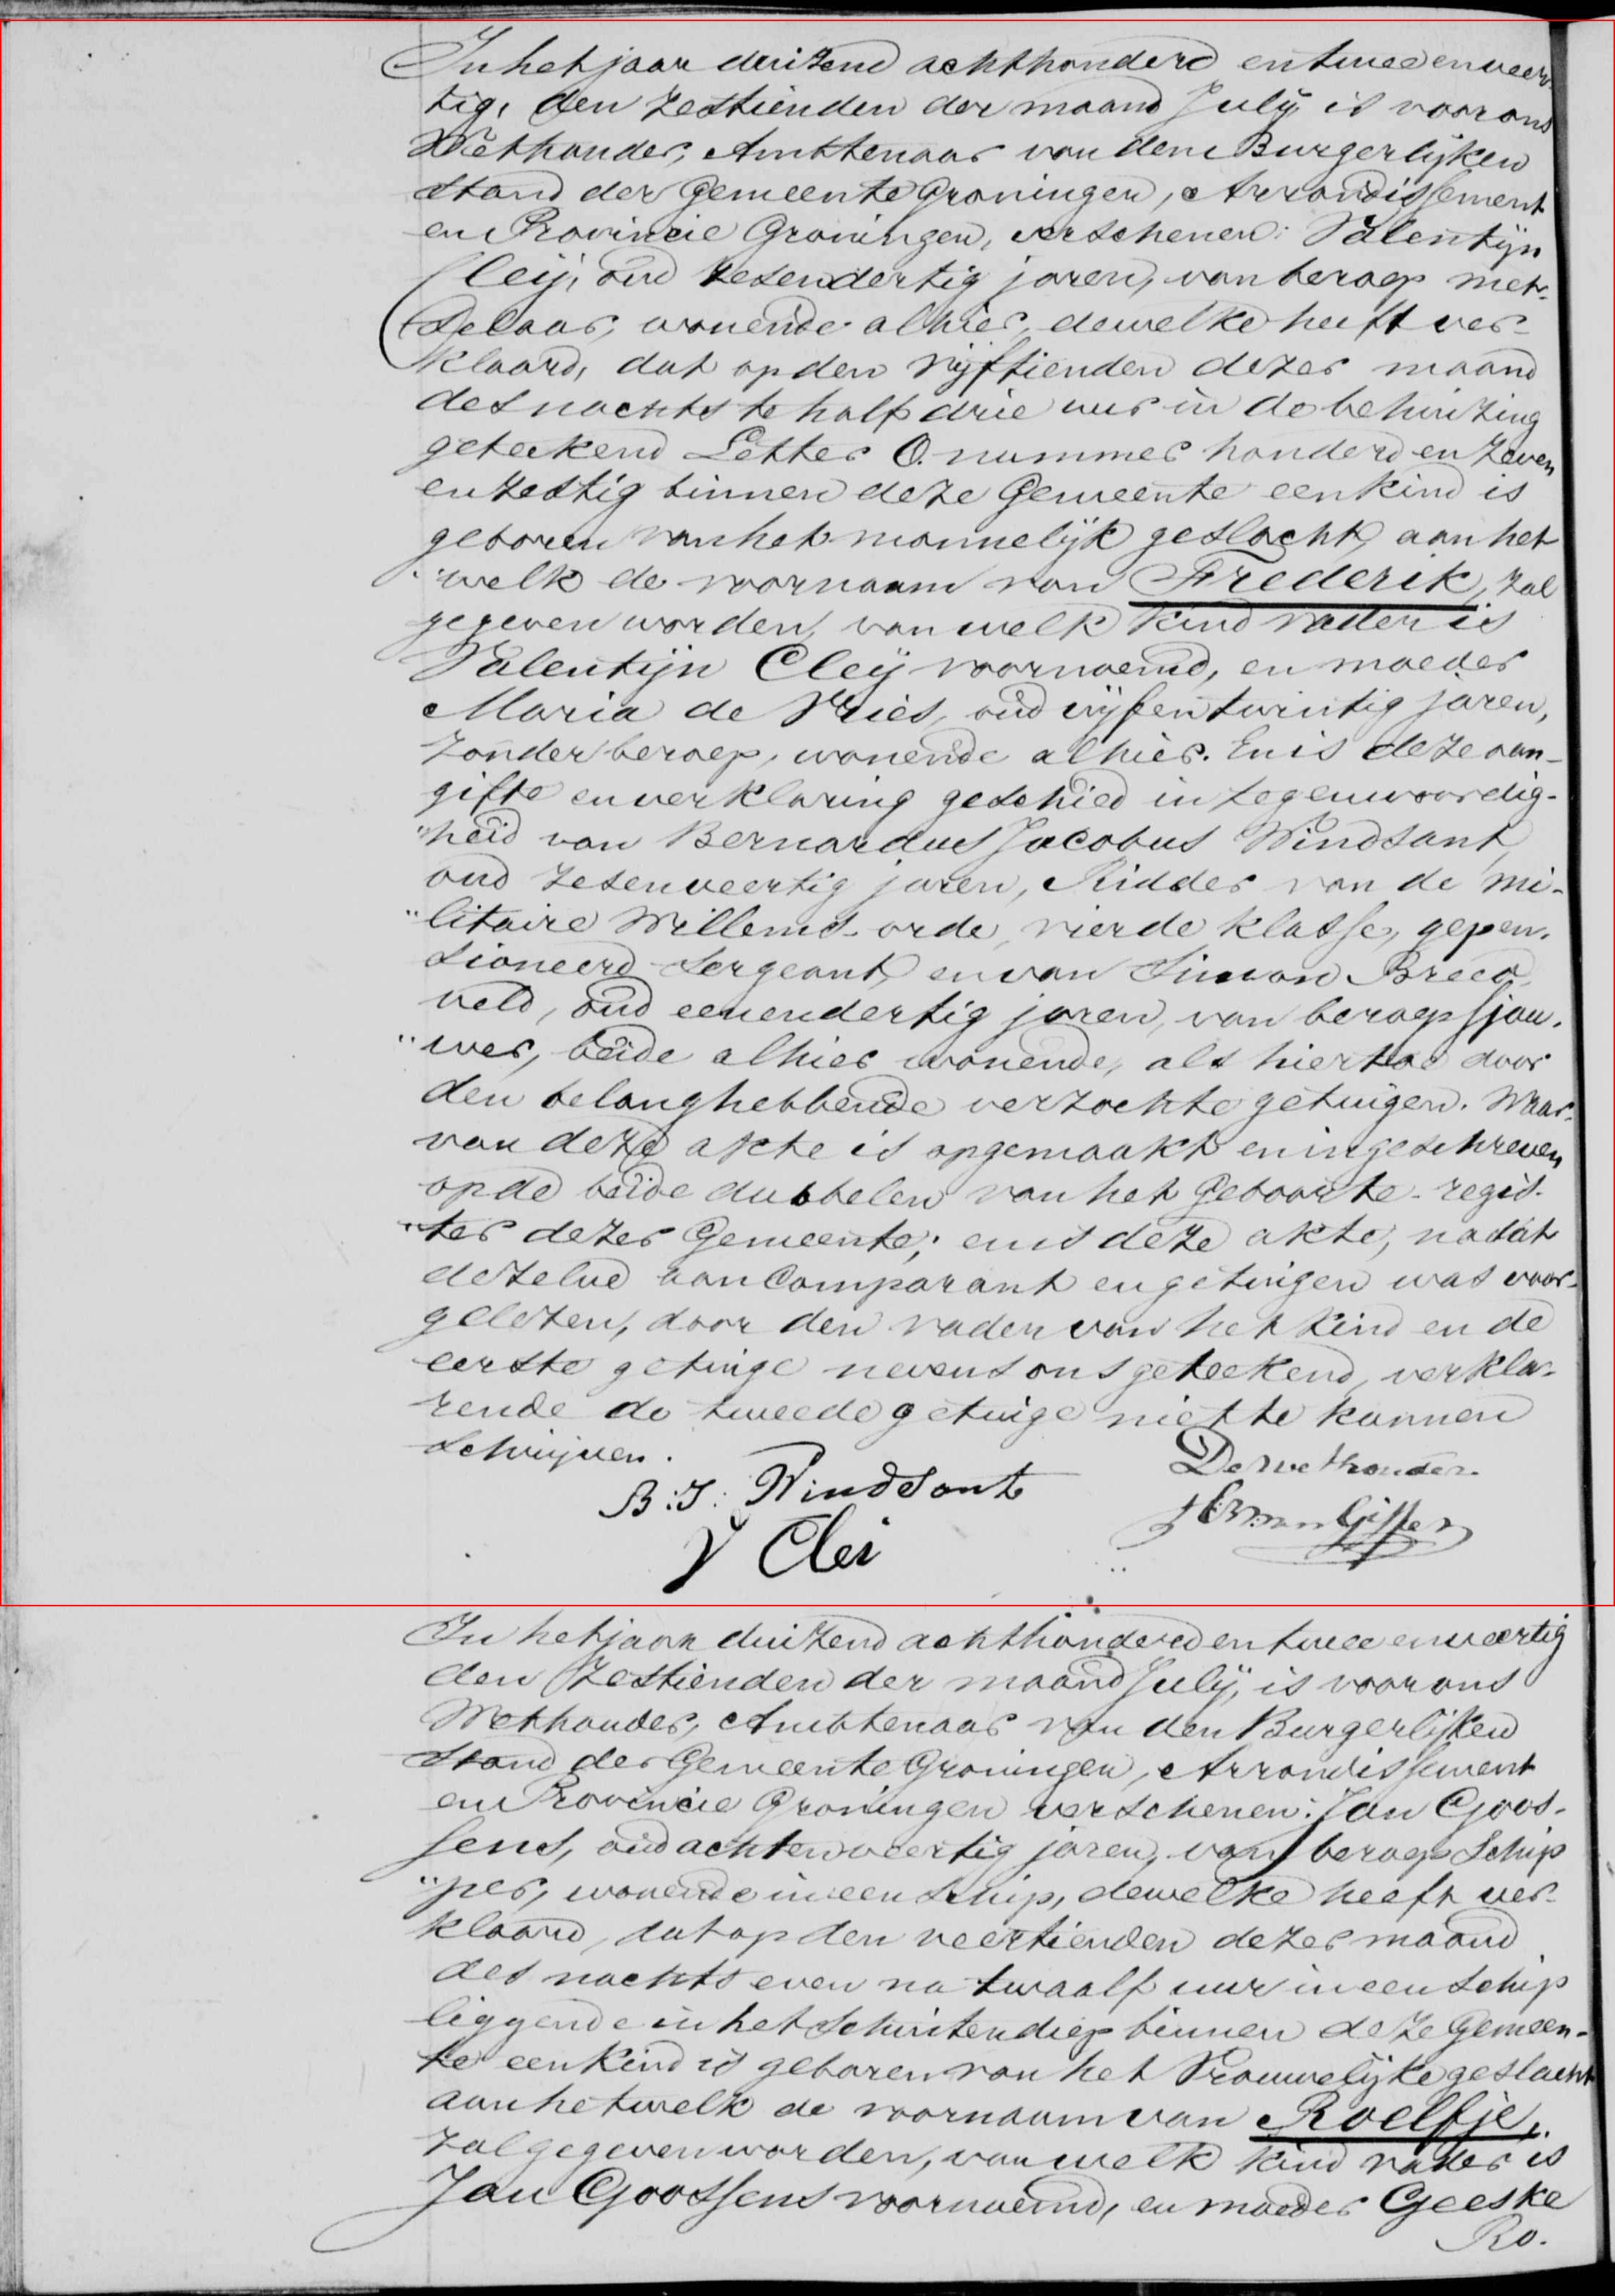 In het jaar duizend achthonderd en twee en veer-
tig, den zestienden der maand July is voor ons
Wethouder, Ambtenaar van den Burgerlijken
stand der Gemeente Groningen, Arrondissement
en Provincie Groningen, verschenen: Valentijn
Cleij, oud zesendertig jaren, van beroep met-
selaar, wonende alhier, dewelke heeft ver-
klaard, dat op den vijftienden dezer maand
des nachts te half drie uur in de behuizing
geteekend Letter O. nummer honderd en zeven
en zestig binnen deze Gemeente een kind is
geboren van het mannelijk geslacht, aan het
"welk de voornaam van Frederik, zal
gegeven worden, van welk kind vader is
Valentijn Cleij voornoemd, en moeder
Maria de Vries, oud vijfentwintig jaren,
zonder beroep, wonende alhier. En is deze aan-
gifte en verklaring geschied in tegenwoordig-
"heid van Bernardus Jacobus Windsant,
oud zesenveertig jaren, Ridder van de mi-
"litaire Willems-orde, vierde klasse, gepen-
sioneerd Sergeant, en van Simon Breed
veld, oud eenendertig jaren, van beroep sjou-
"wer, beide alhier wonende, als hiertoe door
den belanghebbende verzochte getuigen. Waar-
van deze akte is opgemaakt en ingeschreven
op de beide dubbelen van het Geboorte-regis-
"ter dezer Gemeente; en is deze akte, nadat
dezelve aan Comparant en getuigen was voor-
gelezen, door den vader van het kind en de
eerste getuige nevens ons geteekend, verkla-
rende de tweede getuige niet te kunnen
schrijven.
De wethouder
B: J: Windsant
V Clei
In het jaar duizend achthonderd en twee en veertig
den zestienden der maand July, is voor ons
Wethouder, Ambtenaar van den Burgerlijken
Stand der Gemeente Groningen, Arrondissement
en Provincie Groningen verschenen: Jan Goos-
sens, oud achtenveertig jaren, van beroep Schip
"per, wonende in een schip, dewelke heeft ver-
klaard, dat op den veertienden dezer maand
des nachts even na twaalf uur in een schip
liggende in het Schuitendiep binnen deze Gemeen-
te een kind is geboren van het Vrouwelijke geslacht
aan hetwelk de voornaam van Roelfje,
zal gegeven worden, van welk kind vader is
Jan Goossens voornoemd, en moeder Geeske
Ro.